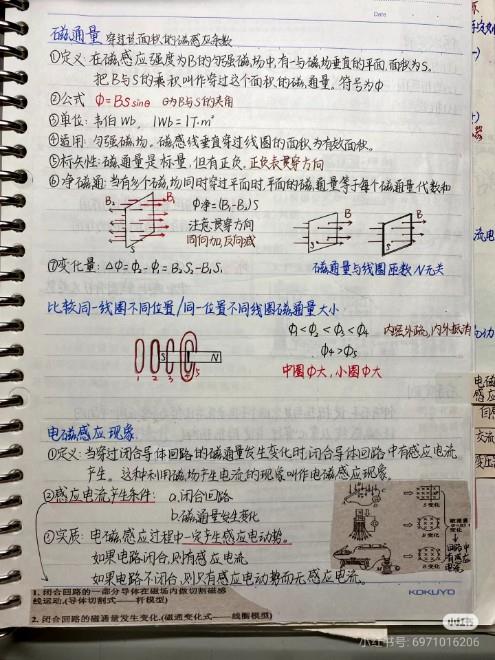 Date
磁通量 穿过某面积的磁感应条数
①定义:在磁感应强度为B的匀强磁场中,有一与磁场垂直的平面,面积为S。
把B与S的乘积叫作穿过这个面积的磁通量。符号为Φ
②公式 Φ=BS sinθ θ为B与S的夹角
③单位:韦伯 Wb, 1Wb=1T·m²
④适用:匀强磁场。磁感线垂直穿过线圈的面积为有效面积。
⑤标矢性:磁通量是标量,但有正负,正负表贯穿方向
⑥净磁通:当有多个磁场同时穿过平面时,平面的磁通量等于每个磁通量代数和
B₂ B₁ Φ净=(B₁-B₂)S
注意贯穿方向
同向加,反向减
S
B
S
B
⑦变化量:ΔΦ=Φ₂-Φ₁=B₂S₂-B₁S₁
磁通量与线圈匝数N无关
比较同一线圈不同位置/同一位置不同线圈磁通量大小
Φ₁<Φ₂<Φ₃<Φ₄ 内强外疏,内外抵消
Φ₄>Φ₅
中圈Φ大,小圈Φ大
S N
1 2 3 4 5
电磁感应现象
①定义:当穿过闭合导体回路的磁通量发生变化时,闭合导体回路中有感应电流
产生。这种利用磁场产生电流的现象叫作电磁感应现象。
②感应电流产生条件: a.闭合回路
b.磁通量发生变化
③实质:电磁感应过程中一定产生感应电动势。
如果电路闭合,则有感应电流
如果电路不闭合,则只有感应电动势而无感应电流。
S变化
B变化
B变化
1. 闭合回路的一部分导体在磁场内做切割磁感
线运动.(导体切割式——杆模型)
2. 闭合回路的磁通量发生变化.(磁通变化式——线圈模型)
KOKUYO
小红书
小红书号: 6971016206
流电
电磁
感应
交流
变压